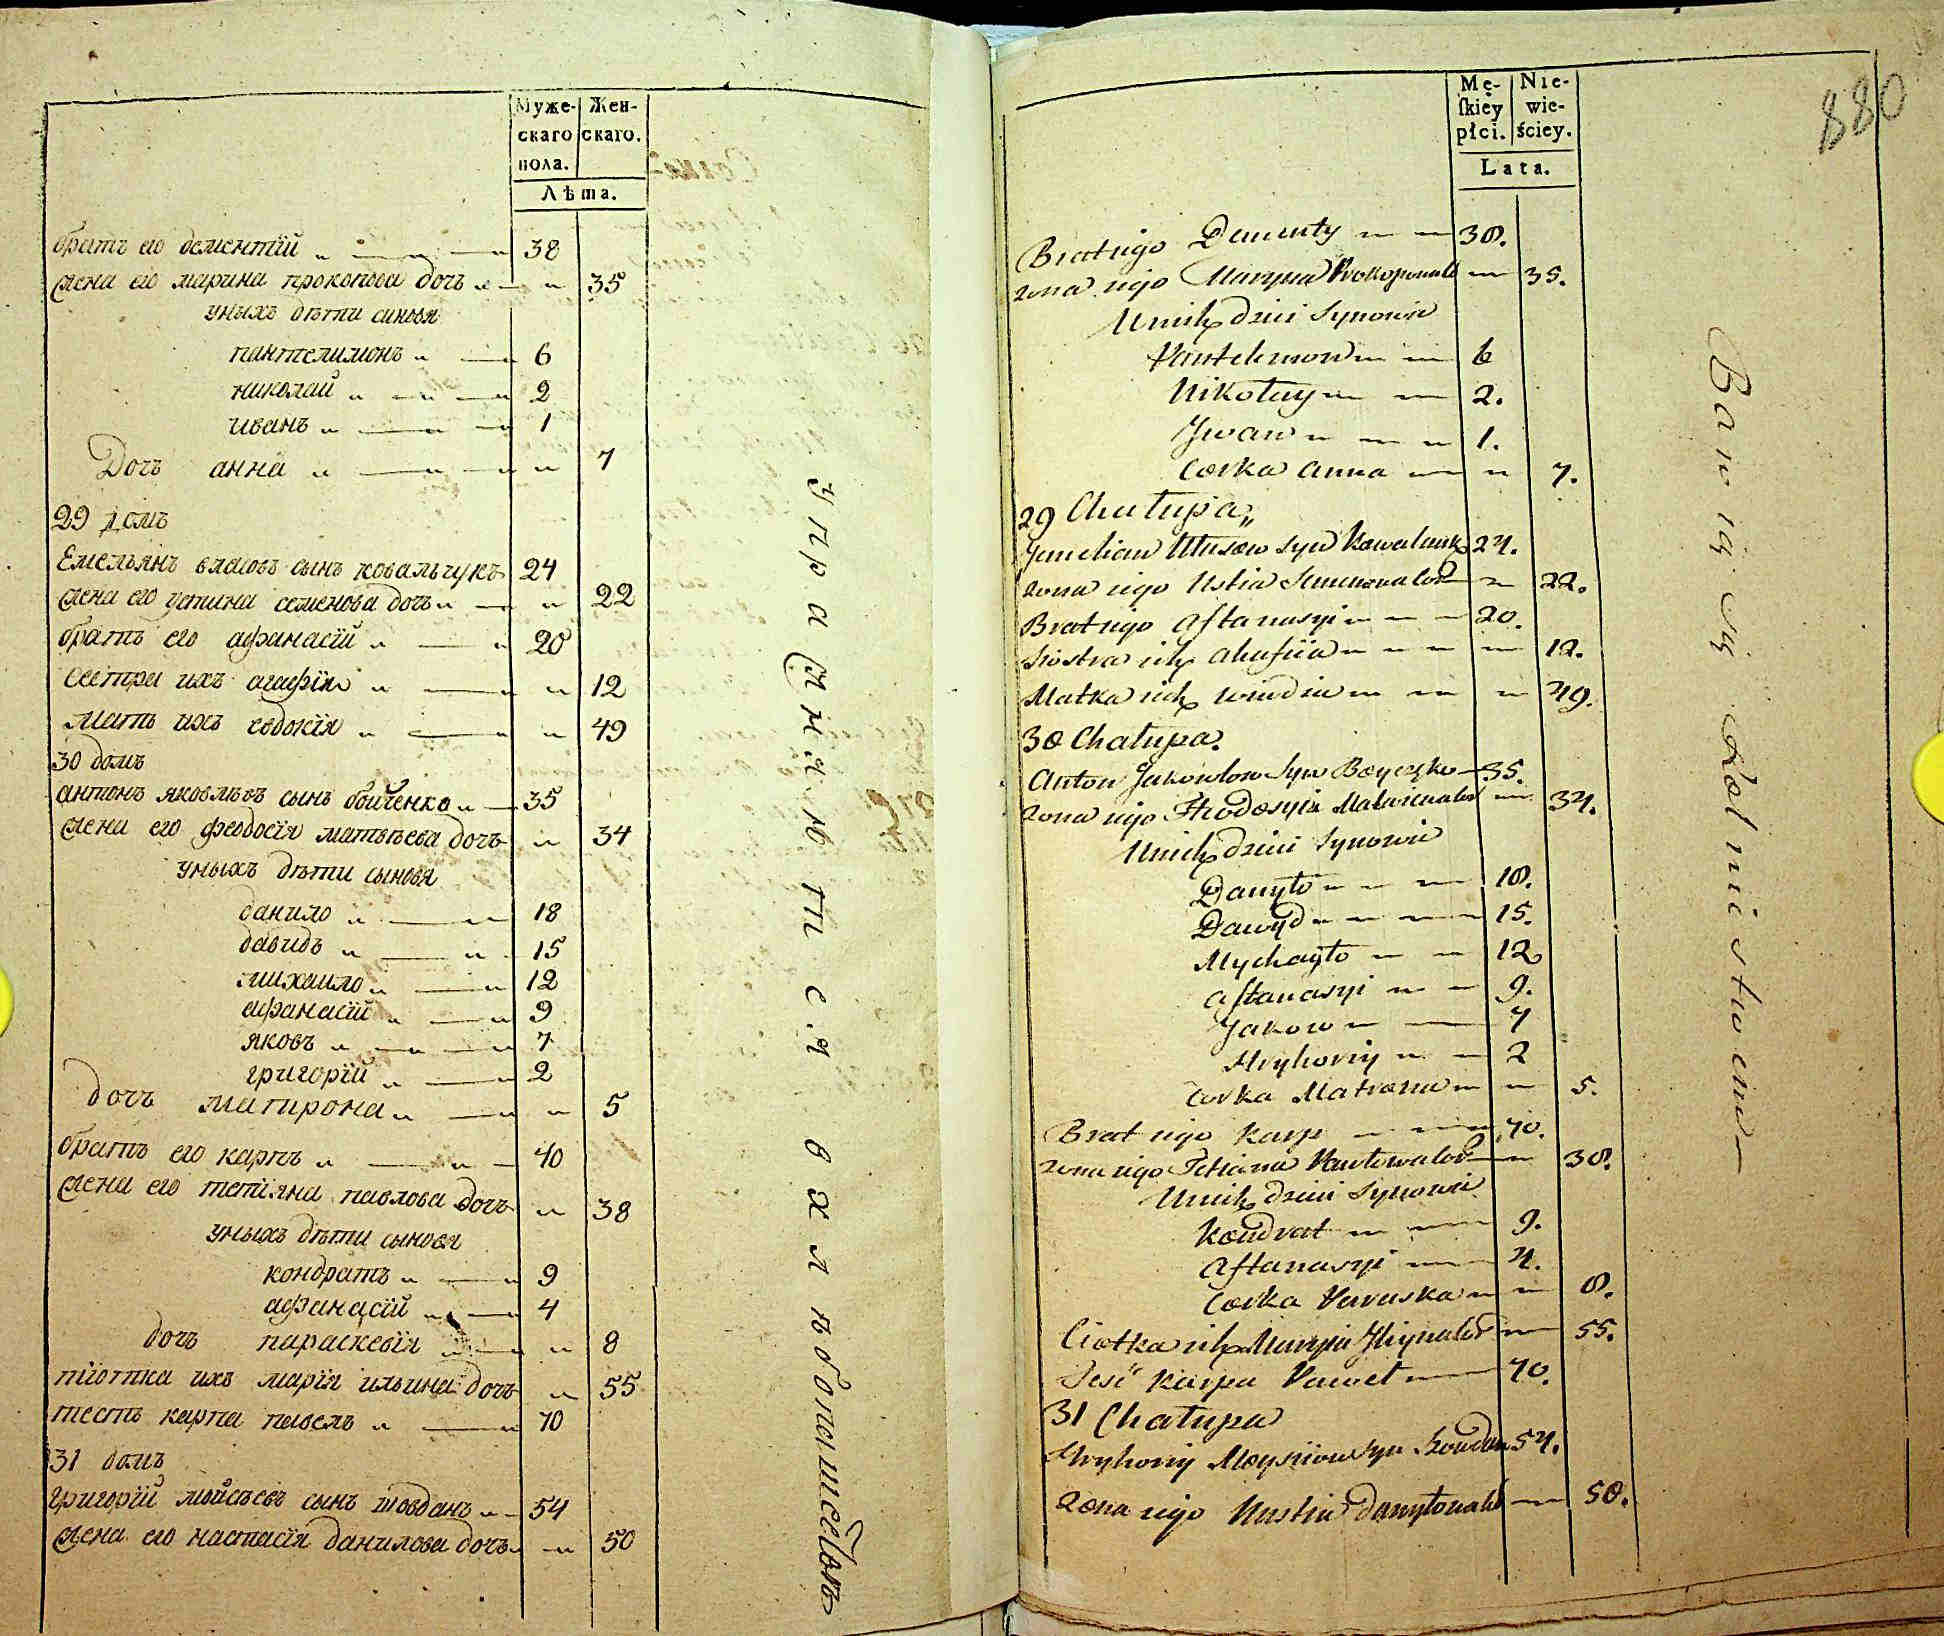 Муже-
скаго
пола.
Жен-
скаго.
Лѣта.
братъ его дементій 38
жена его марина прокопова дочь 35
уныхъ дѣти синовя
пантелимонъ 6
николай 2
иванъ 1
Дочь анна 7
29 домъ
Емельянъ власовъ сынъ ковальчукъ 24
жена его устина семенова дочь 22
братъ его афанасій 20
сестра ихъ агафія 12
мать ихъ евдокія 49
30 домъ
антонъ яковлѣвъ сынъ бойченко 35
жена его феодосія матвѣева дочь 34
уныхъ дѣти сыновя
данило 18
давидъ 15
михаило 12
афанасій 9
яковъ 7
григорій 2
дочь матрона 5
братъ его карпъ 40
жена его тетіяна павлова дочь 38
уныхъ дѣти сыновя
кондратъ 9
афанасій 4
дочь параскевія 8
тіотка ихъ марія ильина дочь 55
тесть карпа павелъ 70
31 домъ
григорій мойсѣевъ сынъ жовданъ 54
жена его настасія данилова дочь 50
Упражняются въ хлѣбопашествѣ
880
Mę-
ſkiey
płci.
Nie-
wie-
ściey.
Lata.
Brat iego Dementy 38.
zona iego Maryna Prokopowa 35.
U nich dzieci Synowie
Pantelimon 6
Nikołay 2.
Jwan 1.
Corka Anna 7.
29 Chałupa
Jemelian Własow Syn Kowalczuk 24.
zona iego Ustia Semenowa 22.
Brat iego Aftanasyi 20.
Siostra ich Ahafiia 12.
Matka ich 49.
30 Chałupa.
Anton Jakowlow Syn Boyczko 35.
zona iego Fteodosyia 34.
U nich dzieci Synowie
Danyło 18.
Dawyd 15.
Mychayło 12
Aftanasyi 9.
Jakow 7
Hryhoriy 2
Corka Matrona 5.
Brat iego Karp 40.
zona iego Tetiana Pawłowa 38.
U nich dzieci Synowie
Kondrat 9.
Aftanasyi 4.
Corka Paraska 8.
Ciotka ich Maryia 55.
Teść Karpa Paweł 70.
31 Chałupa
Hryhoriy Moysiiow Syn 54.
zona iego Nastia Danyłowa 50.
Bawią się Rolnictwem